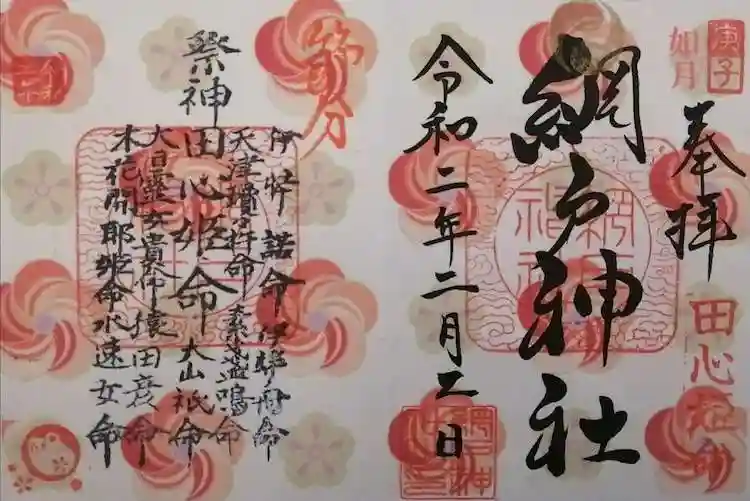 庚子
如月
奉拝
田心姫命
網戸神社
令和二年二月二日
節分
伊弉諾命 伊弉冊命
天津瓊々杵命 素盞鳴命
祭神 田心姫命 大山祇命
大日霊女貴命 猿田彦命
木花開耶姫命 水速女命